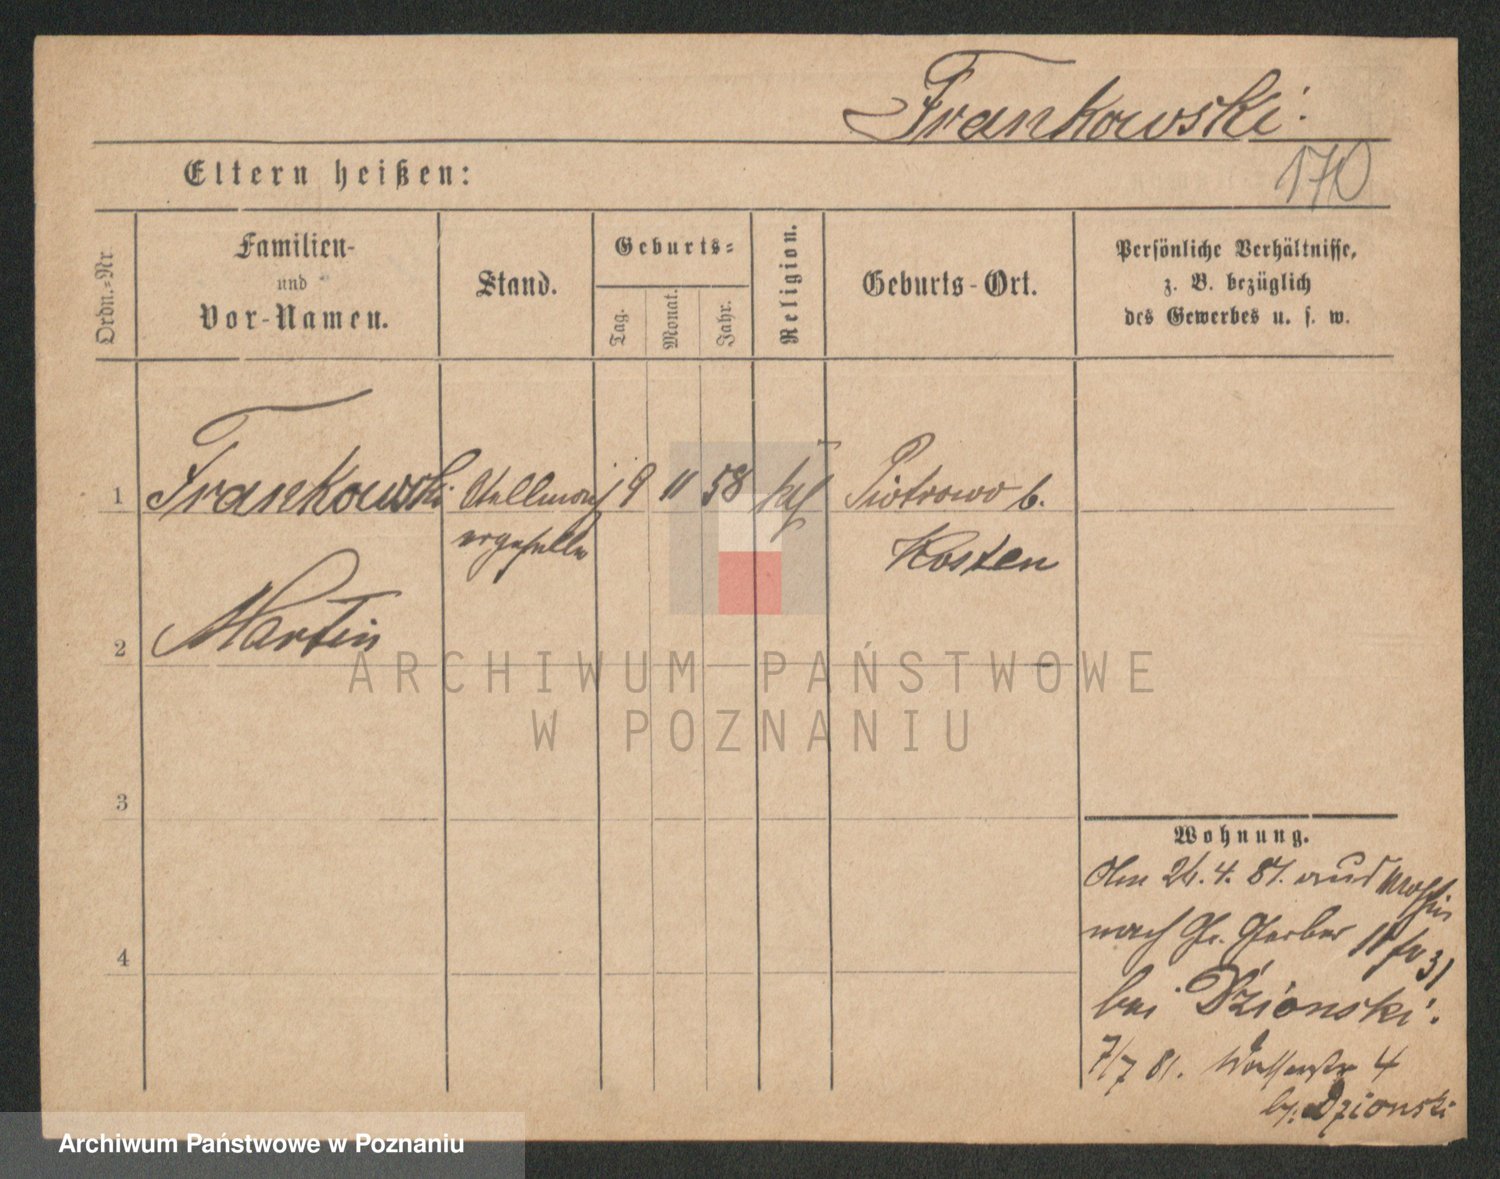 Frankowski.
170
Eltern heißen:
Ordn.=Nr
Familien-
und
Vor-Namen.
Stand.
Geburts=
Tag.
Monat.
Jahr.
Religion.
Geburts-Ort.
Persönliche Verhältnisse,
z. B. bezüglich
des Gewerbes u. s. w.
1
Frankowski Stellmach 9 11 58 kath Piotrowo b.
ergeselle Kosten
2
Martin
3
4
Wohnung.
Am 26. 4. 81. aus
nach Gr. Gerber
bei Dzionski.
7/7 81. Wasserstr 4
by. Dzionski
ARCHIWUM PAŃSTWOWE
W POZNANIU
Archiwum Państwowe w Poznaniu